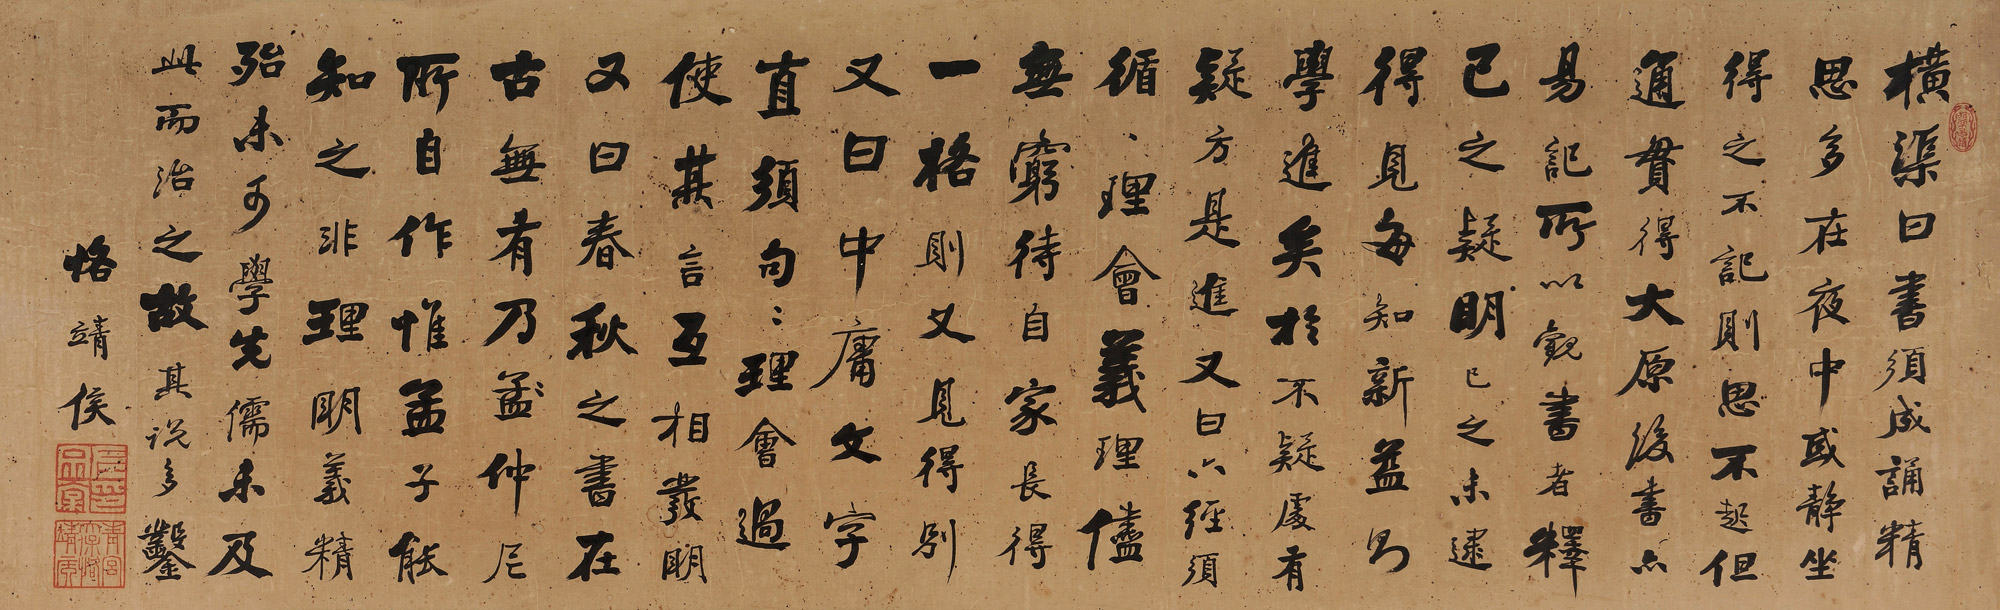 橫渠曰書須成誦精
思多在夜中或靜坐
得之不記則思不起但
通貫得大原後書亦
易記所以觀書者釋
已之疑明已之未達
得見每知新益則
學進矣於不疑處有
疑方是進又曰六經須
循〻理會義理儘
無窮待自家長得
一格則又見得別
又曰中庸文字
直須句〻理會過
使其言互相發明
又曰春秋之書在
古無有乃孟仲尼
所自作惟孟子能
知之非理明義精
殆未可學先儒未及
此而治之故其說多鑿
恪靖侯